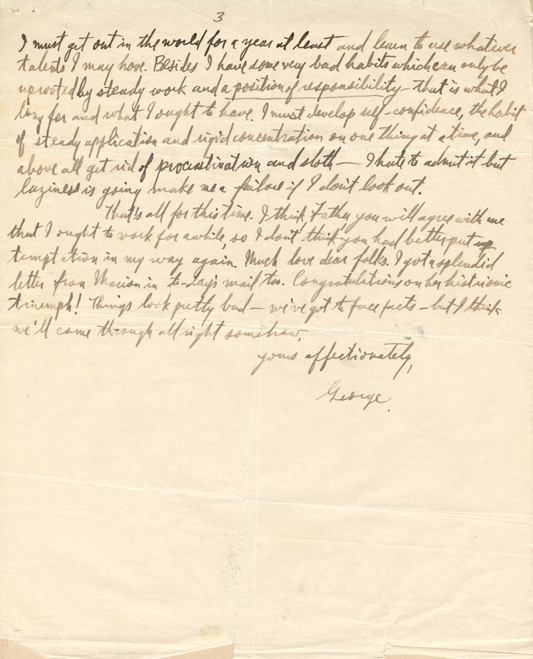 3
I must get out in the world for a year at least and learn to use whatever
talents I may have. Besides I have some very bad habits which can only be
uprooted by steady work and a position of responsibility - that is what I
long for and what I ought to have. I must develop self-confidence, the habit
of steady application and rigid concentration on one thing at a time, and
above all get rid of procrastination and sloth — I hate to admit it but
laziness is going make me a failure if I don't look out.
That's all for this time. I think Father you will agree with me
that I ought to work for awhile, so I don't think you had better put
temptation in my way again. Much love dear folks. I got a splendid
letter from Marion in to-day's mail too. Congratulations on her histrionic
triumph! Things look pretty bad — we've got to face facts — but I think
we'll come through all right somehow.
yours affectionately,
George.